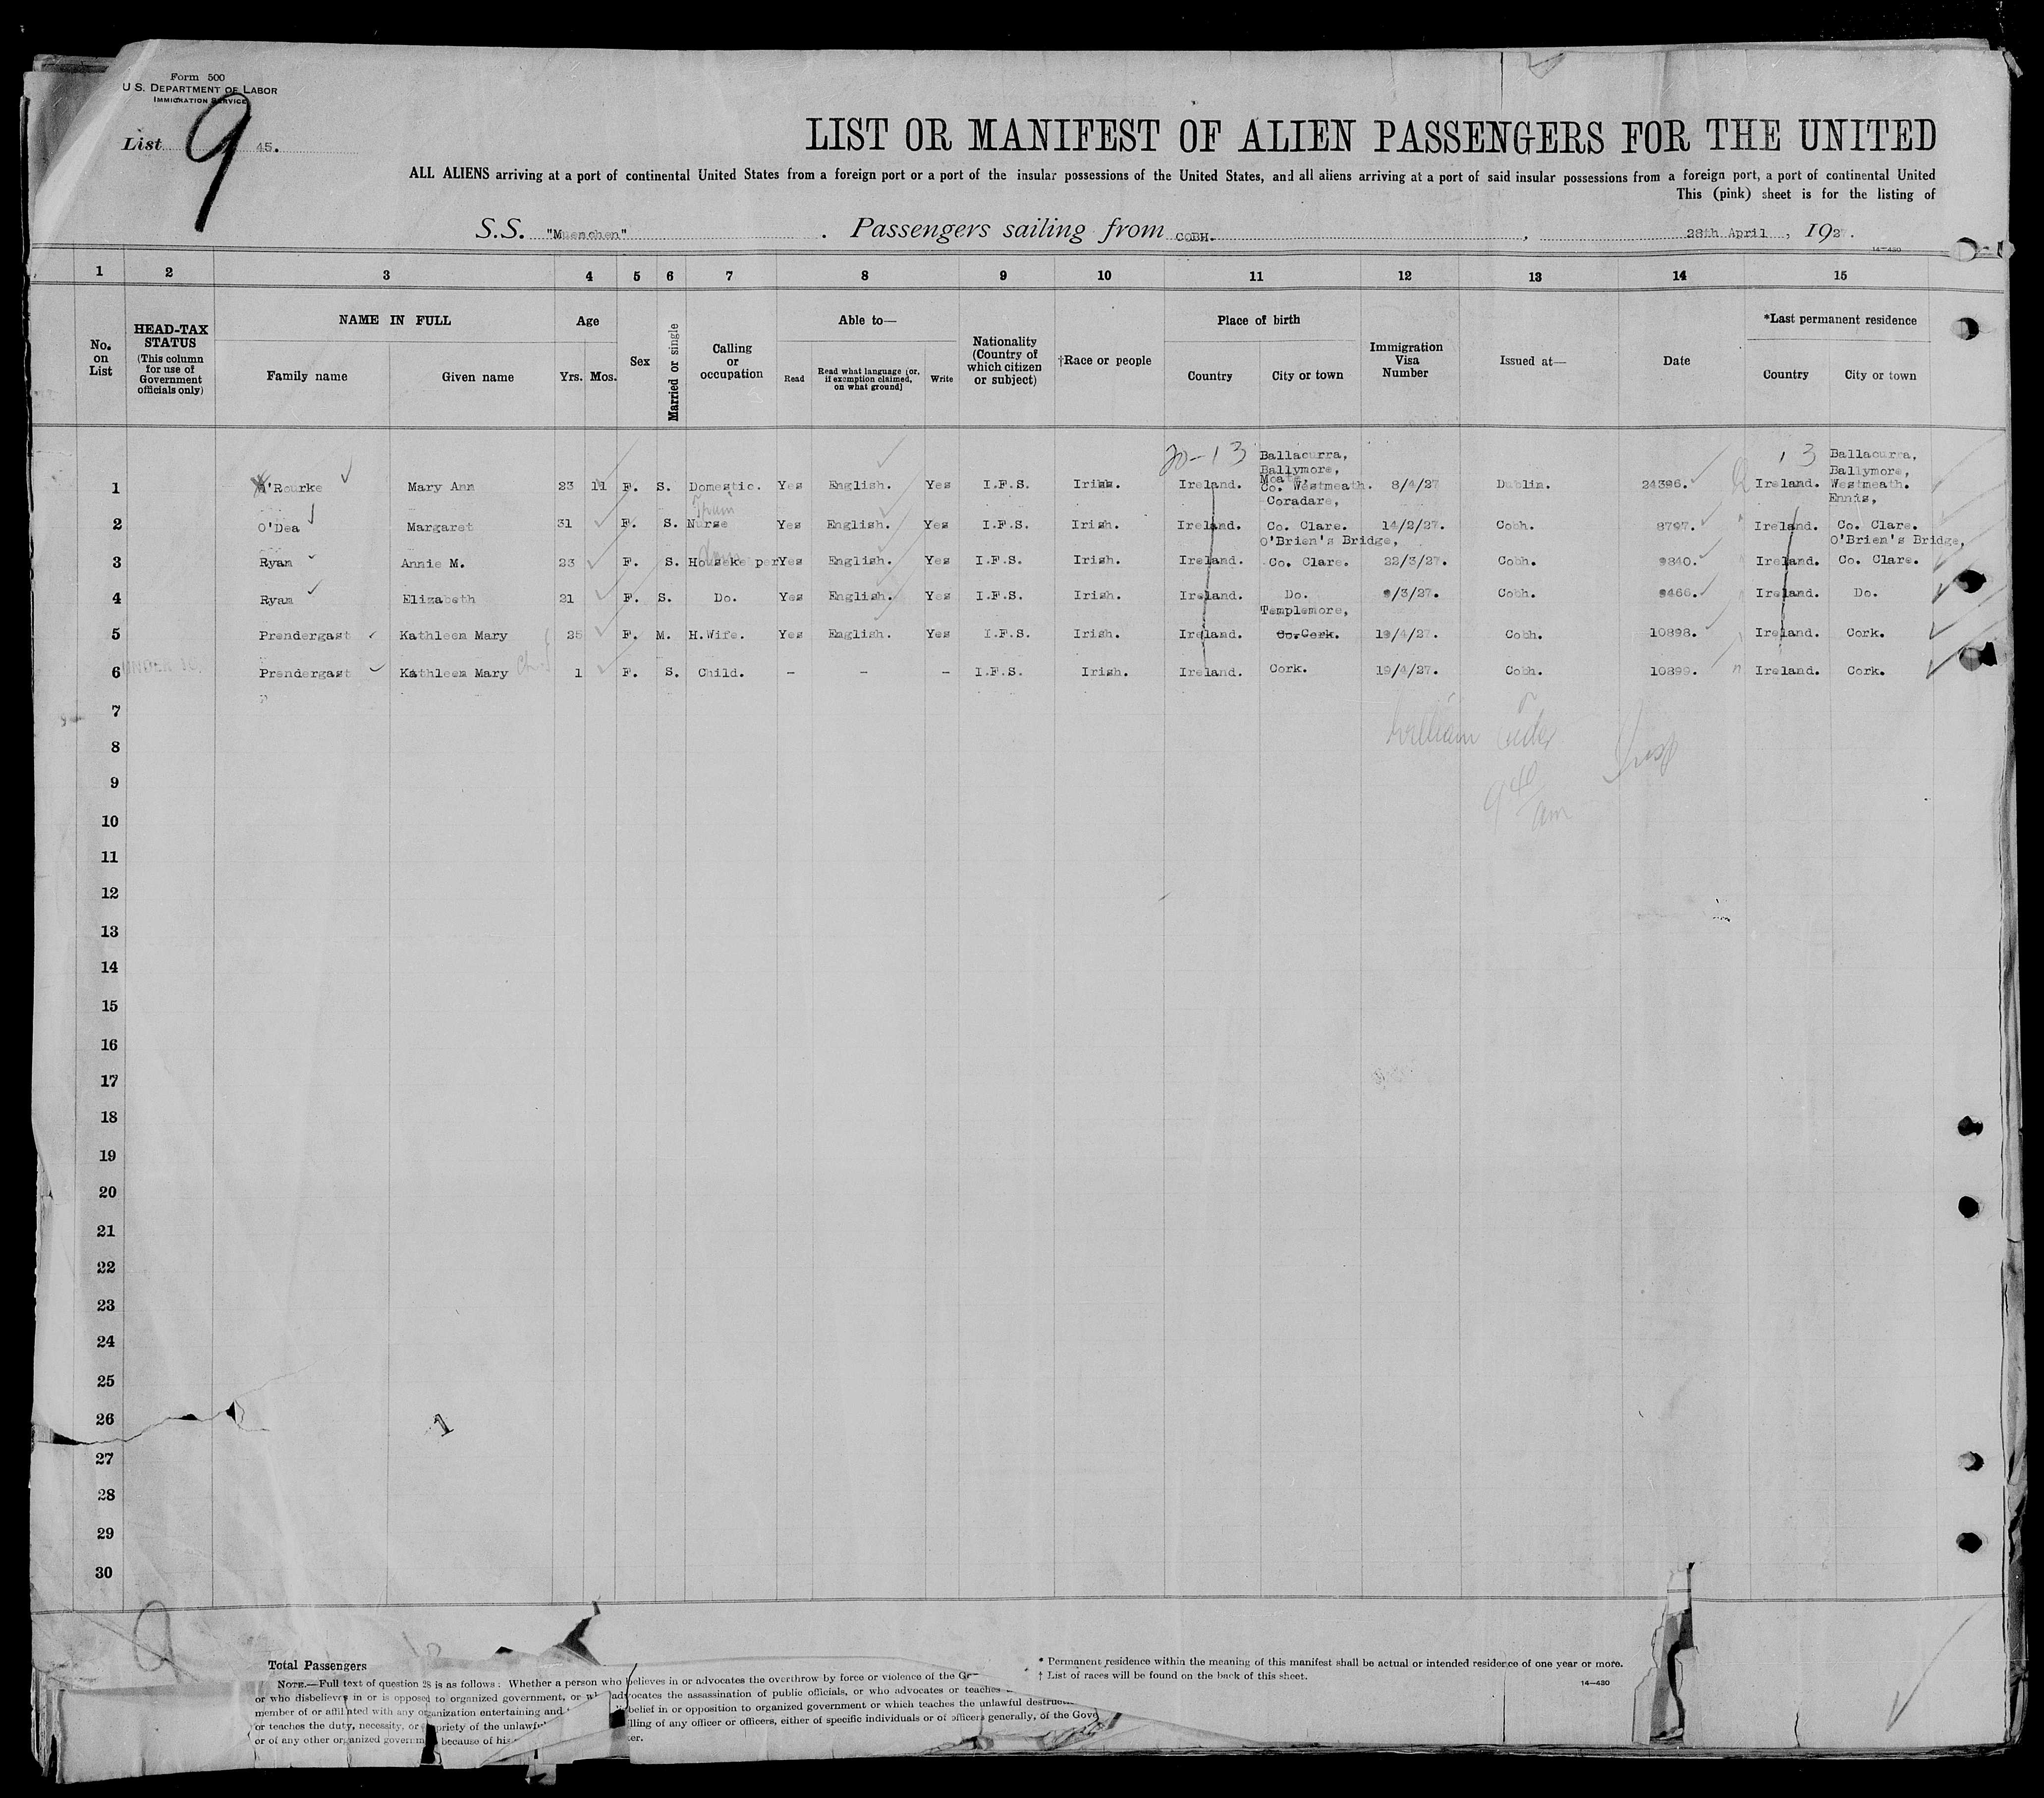 Form 500
U S. DEPARTMENT OF LABOR
IMMIGRATION SERVICE
List 9 45.
LIST OR MANIFEST OF ALIEN PASSENGERS FOR THE UNITED
ALL ALIENS arriving at a port of continental United States from a foreign port or a port of the insular possessions of the United States, and all aliens arriving at a port of said insular possessions from a foreign port, a port of continental United
This (pink) sheet is for the listing of
S.S. "Muenchen" . Passengers sailing from COBH. , 28th April , 1927.
14—430
1 2 3 4 5 6 7 8 9 10 11 12 13 14 15
No. on List
HEAD-TAX STATUS (This column for use of Government officials only)
NAME IN FULL
Family name Given name
Age
Yrs. Mos.
Sex
Married or single
Calling or occupation
Able to—
Read Read what language (or, if exemption claimed, on what ground) Write
Nationality (Country of which citizen or subject)
†Race or people
Place of birth
Country City or town
Immigration Visa Number
Issued at—
Date
*Last permanent residence
Country City or town
20-13 Ballacurra, 13 Ballacurra,
Ballymore, Ballymore,
Moate,
1 O'Rourke Mary Ann 23 11 F. S. Domestic. Yes English. Yes I.F.S. Irish. Ireland. Co. Westmeath. 8/4/27 Dublin. 24396. Ireland. Westmeath.
Coradare, Ennis,
2 O'Dea Margaret 31 F. S. Nurse Yes English. Yes I.F.S. Irish. Ireland. Co. Clare. 14/2/27. Cobh. 8797. Ireland. Co. Clare.
O'Brien's Bridge, O'Brien's Bridge,
3 Ryan Annie M. 23 F. S. Housekeper Yes English. Yes I.F.S. Irish. Ireland. Co. Clare. 22/3/27. Cobh. 9840. Ireland. Co. Clare.
4 Ryan Elizabeth 21 F. S. Do. Yes English. Yes I.F.S. Irish. Ireland. Do. /3/27. Cobh. 9466. Ireland. Do.
Templemore,
5 Prendergast Kathleen Mary 25 F. M. H.Wife. Yes English. Yes I.F.S. Irish. Ireland. Co.Cork. 19/4/27. Cobh. 10898. Ireland. Cork.
6 Prendergast Kathleen Mary 1 F. S. Child. - - - I.F.S. Irish. Ireland. Cork. 19/4/27. Cobh. 10899. Ireland. Cork.
7
William
8
9
940 am
10
11
12
13
14
15
16
17
18
19
20
21
22
23
24
25
26
27
28
29
30
Total Passengers
* Permanent residence within the meaning of this manifest shall be actual or intended residence of one year or more.
† List of races will be found on the back of this sheet.
14—430
NOTE.—Full text of question 28 is as follows: Whether a person who believes in or advocates the overthrow by force or violence of the
or who disbelieves in or is opposed to organized government, or advocates the assassination of public officials, or who advocates or teaches
member of or affiliated with any organization entertaining and belief in or opposition to organized government or which teaches the unlawful
or teaches the duty, necessity, or priety of the unlawful lling of any officer or officers, either of specific individuals or of officers generally, of the
or of any other organized governm because of his